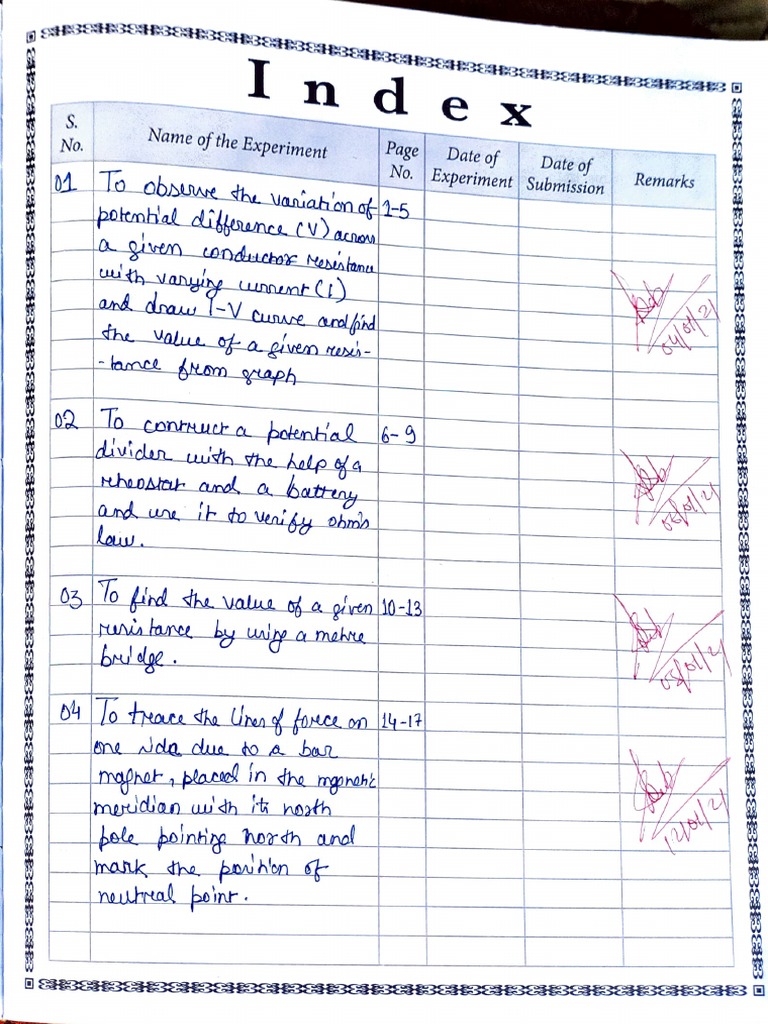 Index
S. No. Name of the Experiment Page No. Date of Experiment Date of Submission Remarks
01 To observe the variation of 1-5
potential difference (V) across
a given conductor resistance
with varying current (I)
and draw I-V curve and find
the value of a given resis-
-tance from graph
04/01/21
02 To contruct a potential 6-9
divider with the help of a
rheostat and a battery
and use it to verify ohm's
law.
/01/21
03 To find the value of a given 10-13
resistance by using a metre
bridge.
/01/21
04 To trace the lines of force on 14-17
one side due to a bar
magnet, placed in the mgenetic
meridian with its north
pole pointing north and
mark the position of
neutral point.
12/01/21